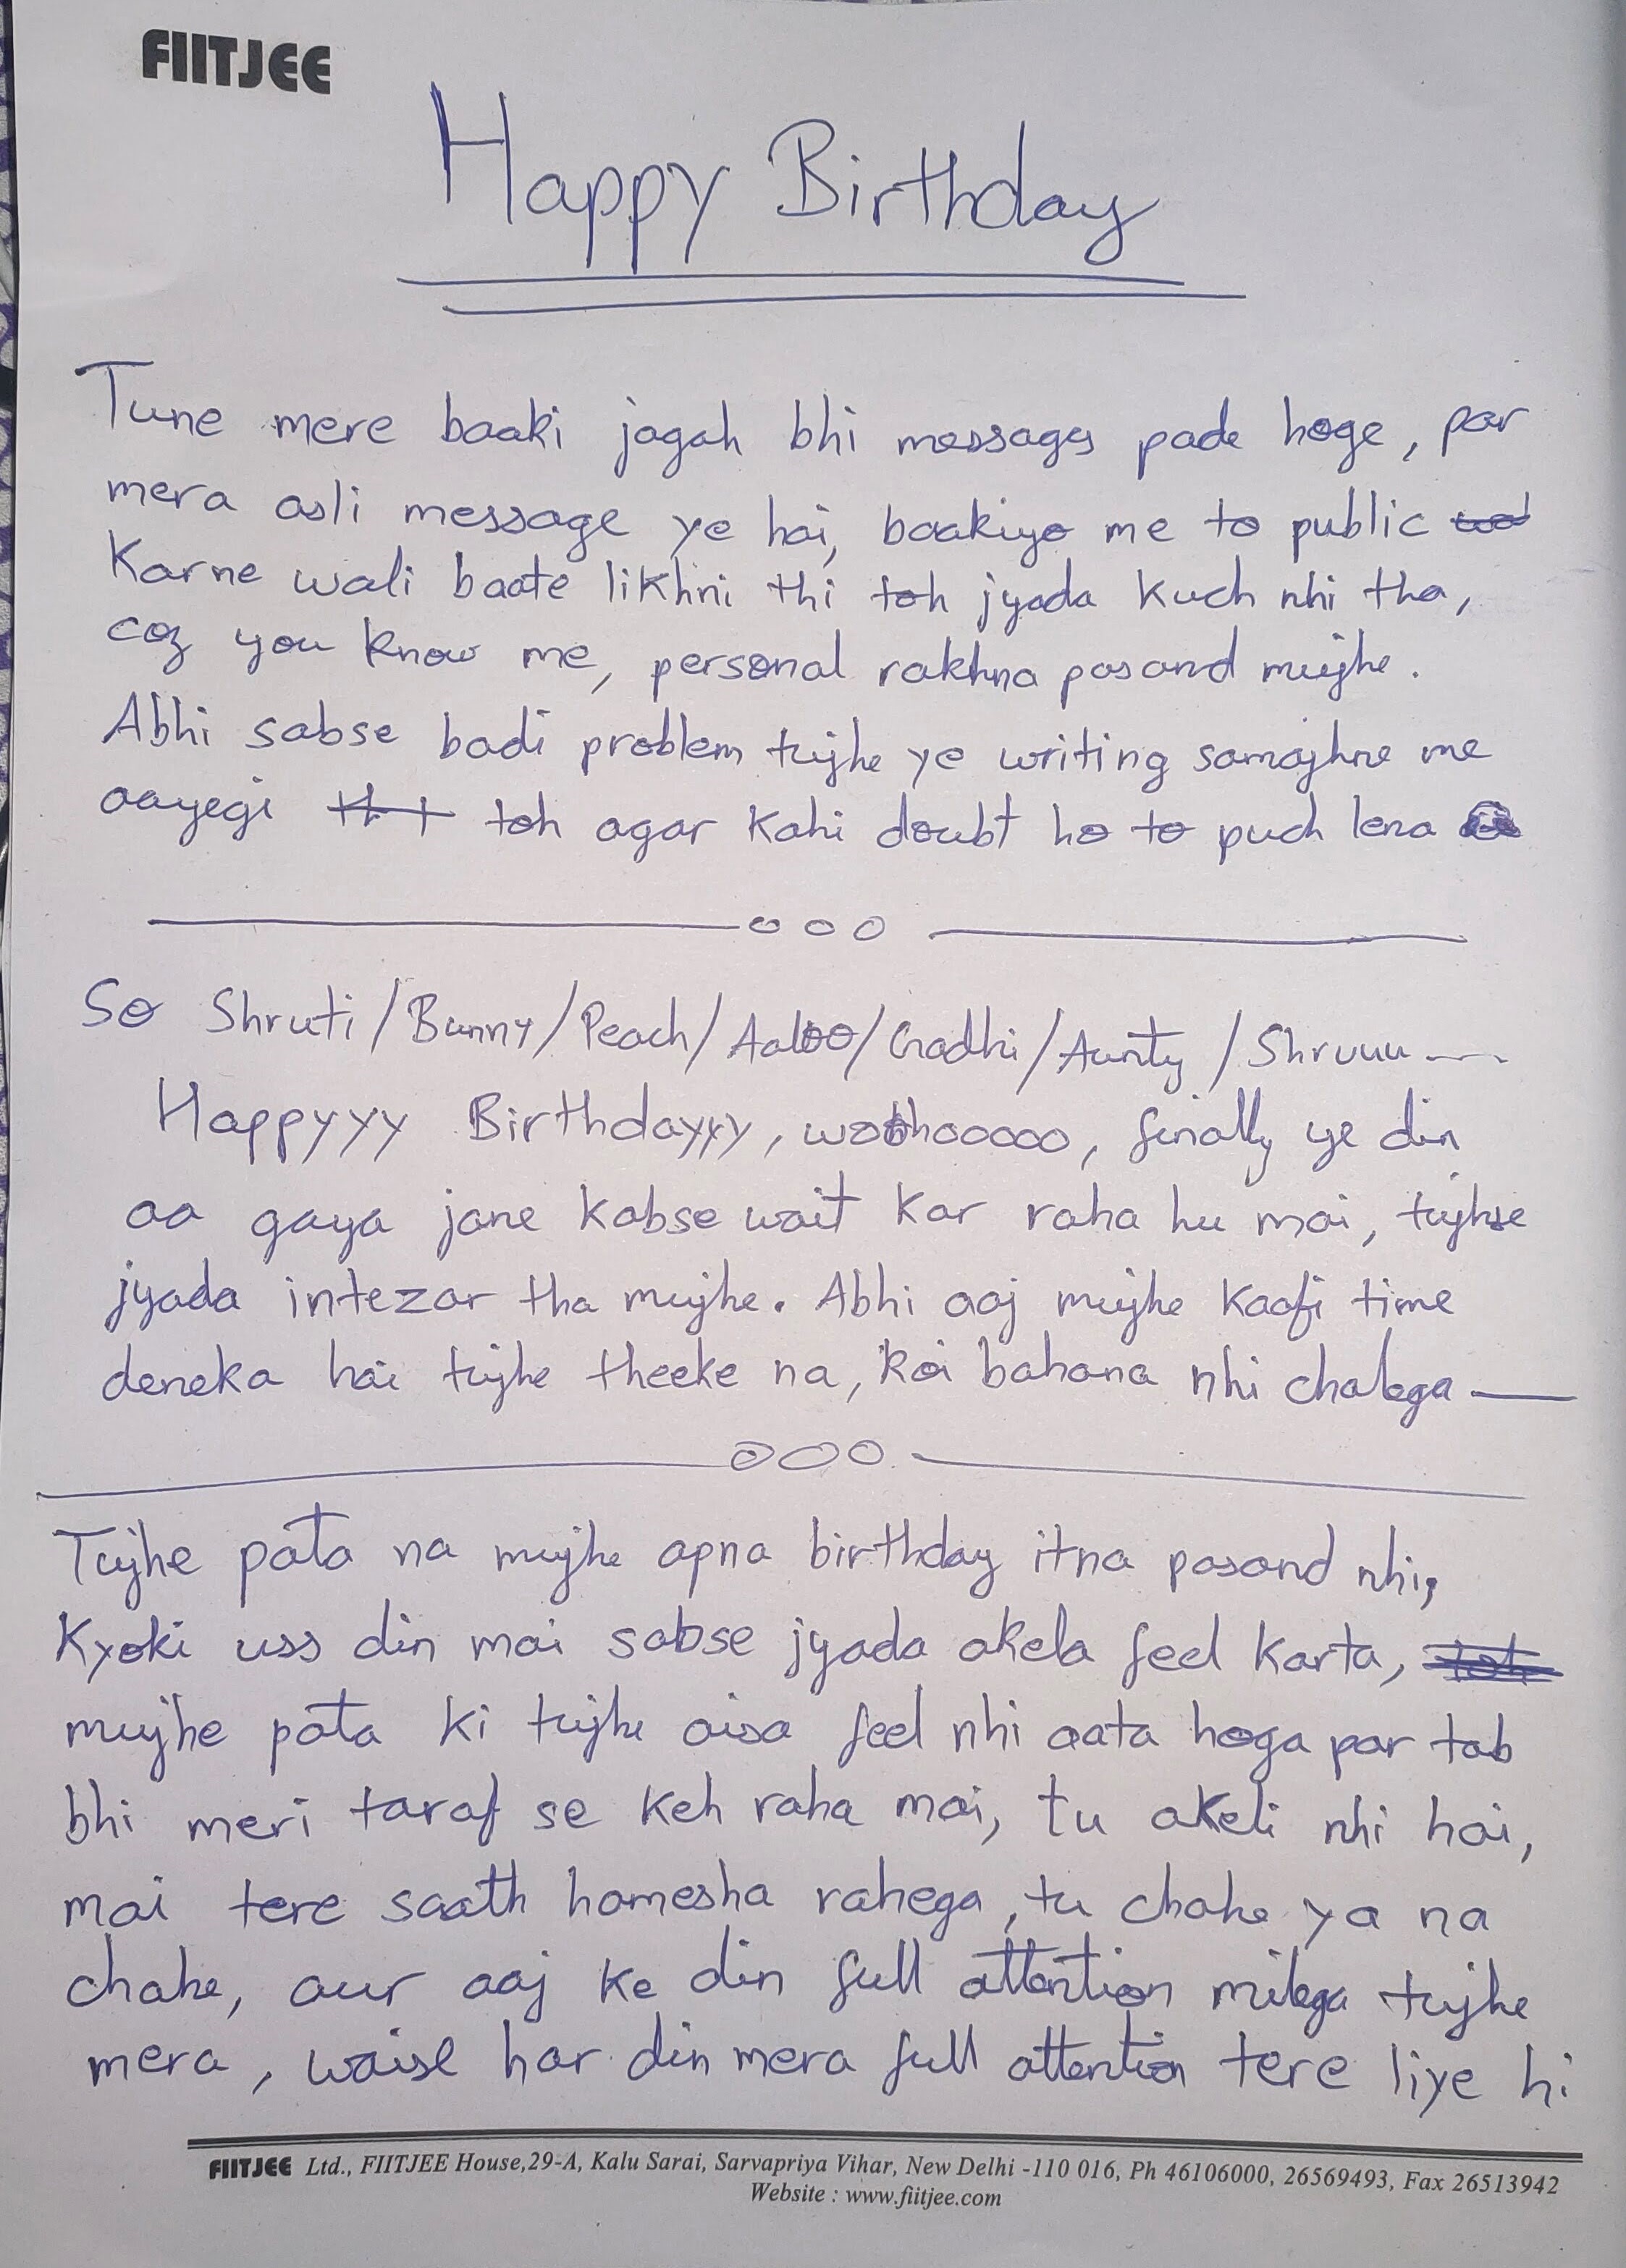 FIITJEE
Happy Birthday
Tune mere baaki jagah bhi messages pade hoge, par
mera asli message ye hai, baakiyo me to public
karne wali baate likhni thi toh jyada kuch nhi tha,
coz you know me, personal rakhna pasand mujhe.
Abhi sabse badi problem tujhe ye writing samajhne me
aayegi toh agar kahi doubt ho to puch lena
So Shruti/Bunny/Peach/Aaloo/Gadhi/Aunty/Shruuu
Happyyy Birthdayyy, woohooooo, finally ye din
aa gaya jane kabse wait kar raha hu mai, tujhse
jyada intezar tha mujhe. Abhi aaj mujhe kaafi time
deneka hai tujhe theeke na, koi bahana nhi chalega
Tujhe pata na mujhe apna birthday itna pasand nhi,
kyoki uss din mai sabse jyada akela feel karta,
mujhe pata ki tujhe aisa feel nhi aata hoga par tab
bhi meri taraf se keh raha mai, tu akeli nhi hai,
mai tere saath hamesha rahega, tu chahe ya na
chahe, aur aaj ke din full attention milega tujhe
mera, waise har din mera full attention tere liye hi
FIITJEE Ltd., FIITJEE House,29-A, Kalu Sarai, Sarvapriya Vihar, New Delhi -110 016, Ph 46106000, 26569493, Fax 26513942
Website : www.fiitjee.com